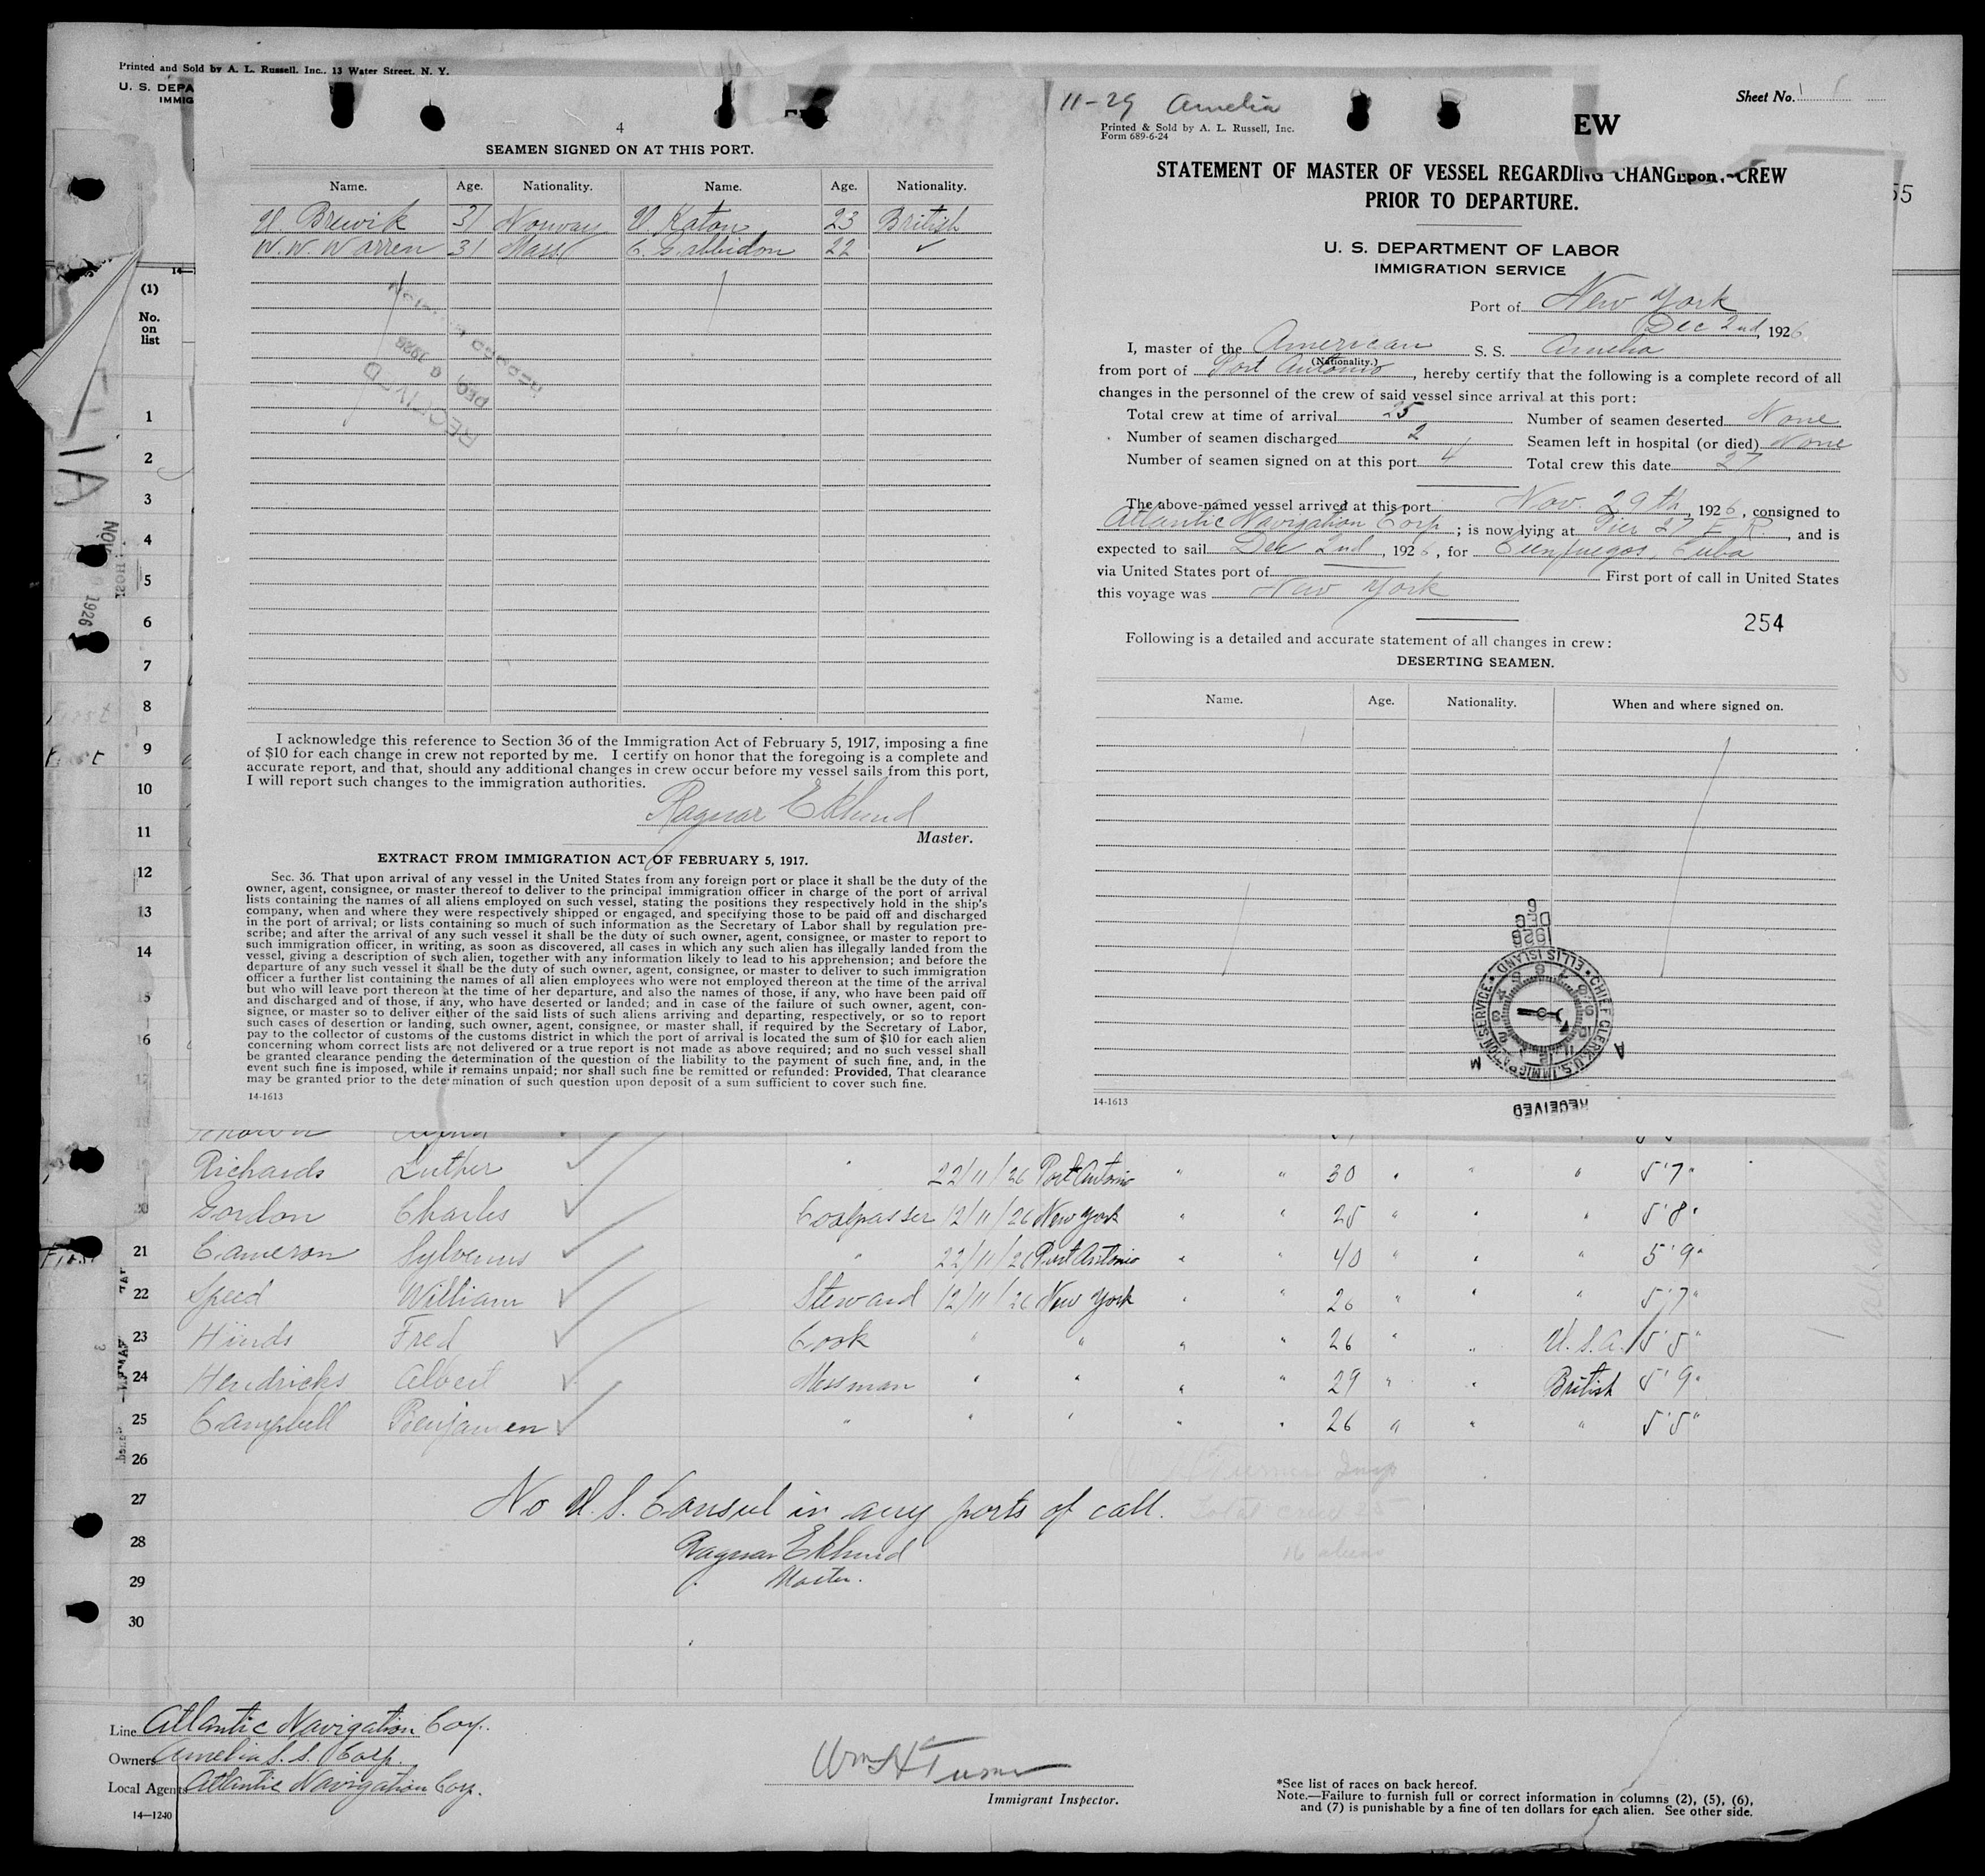 Printed and Sold by A. L. Russell, Inc., 13 Water Street, N. Y.
U. S. DEPA
IMMIG
4
SEAMEN SIGNED ON AT THIS PORT.
Name. Age. Nationality. Name. Age. Nationality.
Brewik 31 Norway Katon 23 British
W. W. Warren 31 Mass C. Gabbidon 22 ✓
RECEIVED
DEC 6 1926
I acknowledge this reference to Section 36 of the Immigration Act of February 5, 1917, imposing a fine
of $10 for each change in crew not reported by me. I certify on honor that the foregoing is a complete and
accurate report, and that, should any additional changes in crew occur before my vessel sails from this port,
I will report such changes to the immigration authorities.
Ragnar Eklund
Master.
EXTRACT FROM IMMIGRATION ACT OF FEBRUARY 5, 1917.
Sec. 36. That upon arrival of any vessel in the United States from any foreign port or place it shall be the duty of the
owner, agent, consignee, or master thereof to deliver to the principal immigration officer in charge of the port of arrival
lists containing the names of all aliens employed on such vessel, stating the positions they respectively hold in the ship's
company, when and where they were respectively shipped or engaged, and specifying those to be paid off and discharged
in the port of arrival; or lists containing so much of such information as the Secretary of Labor shall by regulation pre-
scribe; and after the arrival of any such vessel it shall be the duty of such owner, agent, consignee, or master to report to
such immigration officer, in writing, as soon as discovered, all cases in which any such alien has illegally landed from the
vessel, giving a description of such alien, together with any information likely to lead to his apprehension; and before the
departure of any such vessel it shall be the duty of such owner, agent, consignee, or master to deliver to such immigration
officer a further list containing the names of all alien employees who were not employed thereon at the time of the arrival
but who will leave port thereon at the time of her departure, and also the names of those, if any, who have been paid off
and discharged and of those, if any, who have deserted or landed; and in case of the failure of such owner, agent, con-
signee, or master so to deliver either of the said lists of such aliens arriving and departing, respectively, or so to report
such cases of desertion or landing, such owner, agent, consignee, or master shall, if required by the Secretary of Labor,
pay to the collector of customs of the customs district in which the port of arrival is located the sum of $10 for each alien
concerning whom correct lists are not delivered or a true report is not made as above required; and no such vessel shall
be granted clearance pending the determination of the question of the liability to the payment of such fine, and, in the
event such fine is imposed, while it remains unpaid; nor shall such fine be remitted or refunded: Provided, That clearance
may be granted prior to the determination of such question upon deposit of a sum sufficient to cover such fine.
14-1613
11-29 Amelia
Sheet No. 1
Printed & Sold by A. L. Russell, Inc.
Form 689-6-24
EW
55
STATEMENT OF MASTER OF VESSEL REGARDING CHANG upon CREW
PRIOR TO DEPARTURE.
U. S. DEPARTMENT OF LABOR
IMMIGRATION SERVICE
Port of New York
Dec 2nd, 1926
I, master of the American S. S. Amelia
(Nationality.)
from port of Port Antonio, hereby certify that the following is a complete record of all
changes in the personnel of the crew of said vessel since arrival at this port:
Total crew at time of arrival 25 Number of seamen deserted None
Number of seamen discharged 2 Seamen left in hospital (or died) None
Number of seamen signed on at this port 4 Total crew this date 27
The above-named vessel arrived at this port Nov. 29th, 1926, consigned to
Atlantic Navigation Corp; is now lying at Pier 27 E. R., and is
expected to sail Dec 2nd, 1926, for Cienfuegos, Cuba
via United States port of First port of call in United States
this voyage was New York
254
Following is a detailed and accurate statement of all changes in crew:
DESERTING SEAMEN.
Name. Age. Nationality. When and where signed on.
6
DEC
1926
CHIEF CLERK U.S. IMMIGRATION SERVICE • ELLIS ISLAND •
A M
RECEIVED
14-1613
(1)
No.
on
list
NOV 1926
1
2
3
4
5
6
7
8
First
9
First
10
11
12
13
14
15
16
17
18
19 Richards Luther ✓ " 22/11/26 Port Antonio " " 30 " " " 5'7"
20 Gordon Charles ✓ Coalpasser 12/11/26 New York " " 25 " " " 5'8"
First 21 Cameron Sylvanus ✓ " 22/11/26 Port Antonio " " 40 " " " 5'9"
22 Speed William ✓ Steward 12/11/26 New York " " 26 " " " 5'7"
23 Hinds Fred ✓ Cook " " " " 26 " " U. S. A. 5'5"
24 Hendricks Albert ✓ Messman " " " " 29 " " British 5'9"
25 Campbell Benjamen ✓ " " " " " 26 " " " 5'5"
26
27 No U. S. Consul in any ports of call.
Total crew 25
28 Ragnar Eklund
16 aliens
29 Master.
30
Line Atlantic Navigation Corp.
Owners Amelia S. S. Corp.
Local Agents Atlantic Navigation Corp.
14—1240
Wm H Turner
Immigrant Inspector.
*See list of races on back hereof.
Note.—Failure to furnish full or correct information in columns (2), (5), (6),
and (7) is punishable by a fine of ten dollars for each alien. See other side.